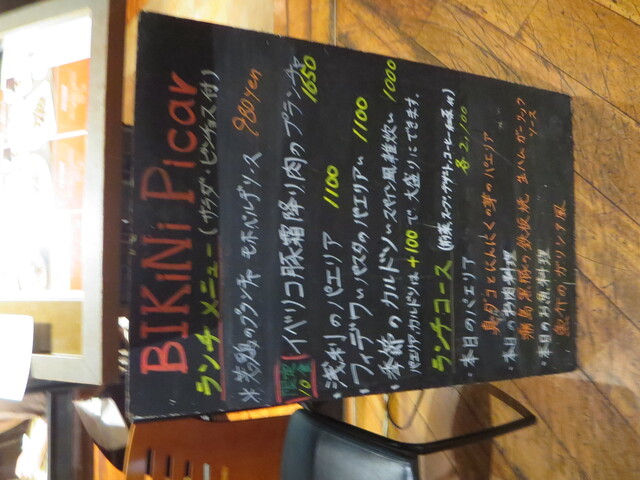 BIKiNi Picar
ランチ メニュー (サラダ・ピンチョス付)
※若鶏のプランチャ モホベルデソース 980yen
限定10食 イベリコ豚霜降り肉のプランチャ 1650
・浅利のパエリア 1100
・フィデワ いパスタのパエリア 1100
・季節のカルドソ いスペイン風雑炊い 1000
パエリア・カルドソは +100 で 大盛りにできます。
ランチコース (前菜、スープ、デザート、コーヒー or 紅茶 付)
各 2,100
・本日のパエリア
真ダコとにんにくの芽のパエリア
・本日のお肉料理
豚の鉄板焼 生ハムガーリックソース
・本日のお魚料理
ガリシア風